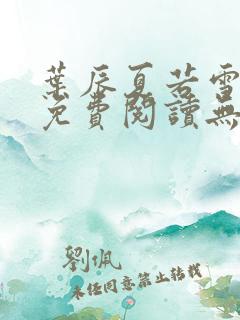 葉辰夏若雪
免費閱讀無
劉佩
未經同意禁止轉載